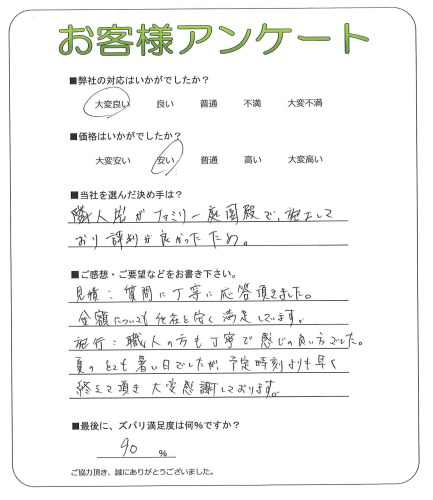 お客様アンケート
■弊社の対応はいかがでしたか？
大変良い 良い 普通 不満 大変不満
■価格はいかがでしたか？
大変安い 安い 普通 高い 大変高い
■当社を選んだ決め手は？
職人宏がファミリー庭園殿で、施工して
おり評判が良かったため。
■ご感想・ご要望などをお書き下さい。
見積：質問に丁寧に応答頂きました。
金額についても他社より安く満足しています。
施行：職人の方も丁寧で感じの良い方でした。
夏のとても暑い日でしたが、予定時刻よりも早く
終えて頂き大変感謝しております。
■最後に、ズバリ満足度は何％ですか？
90 ％
ご協力頂き、誠にありがとうございました。